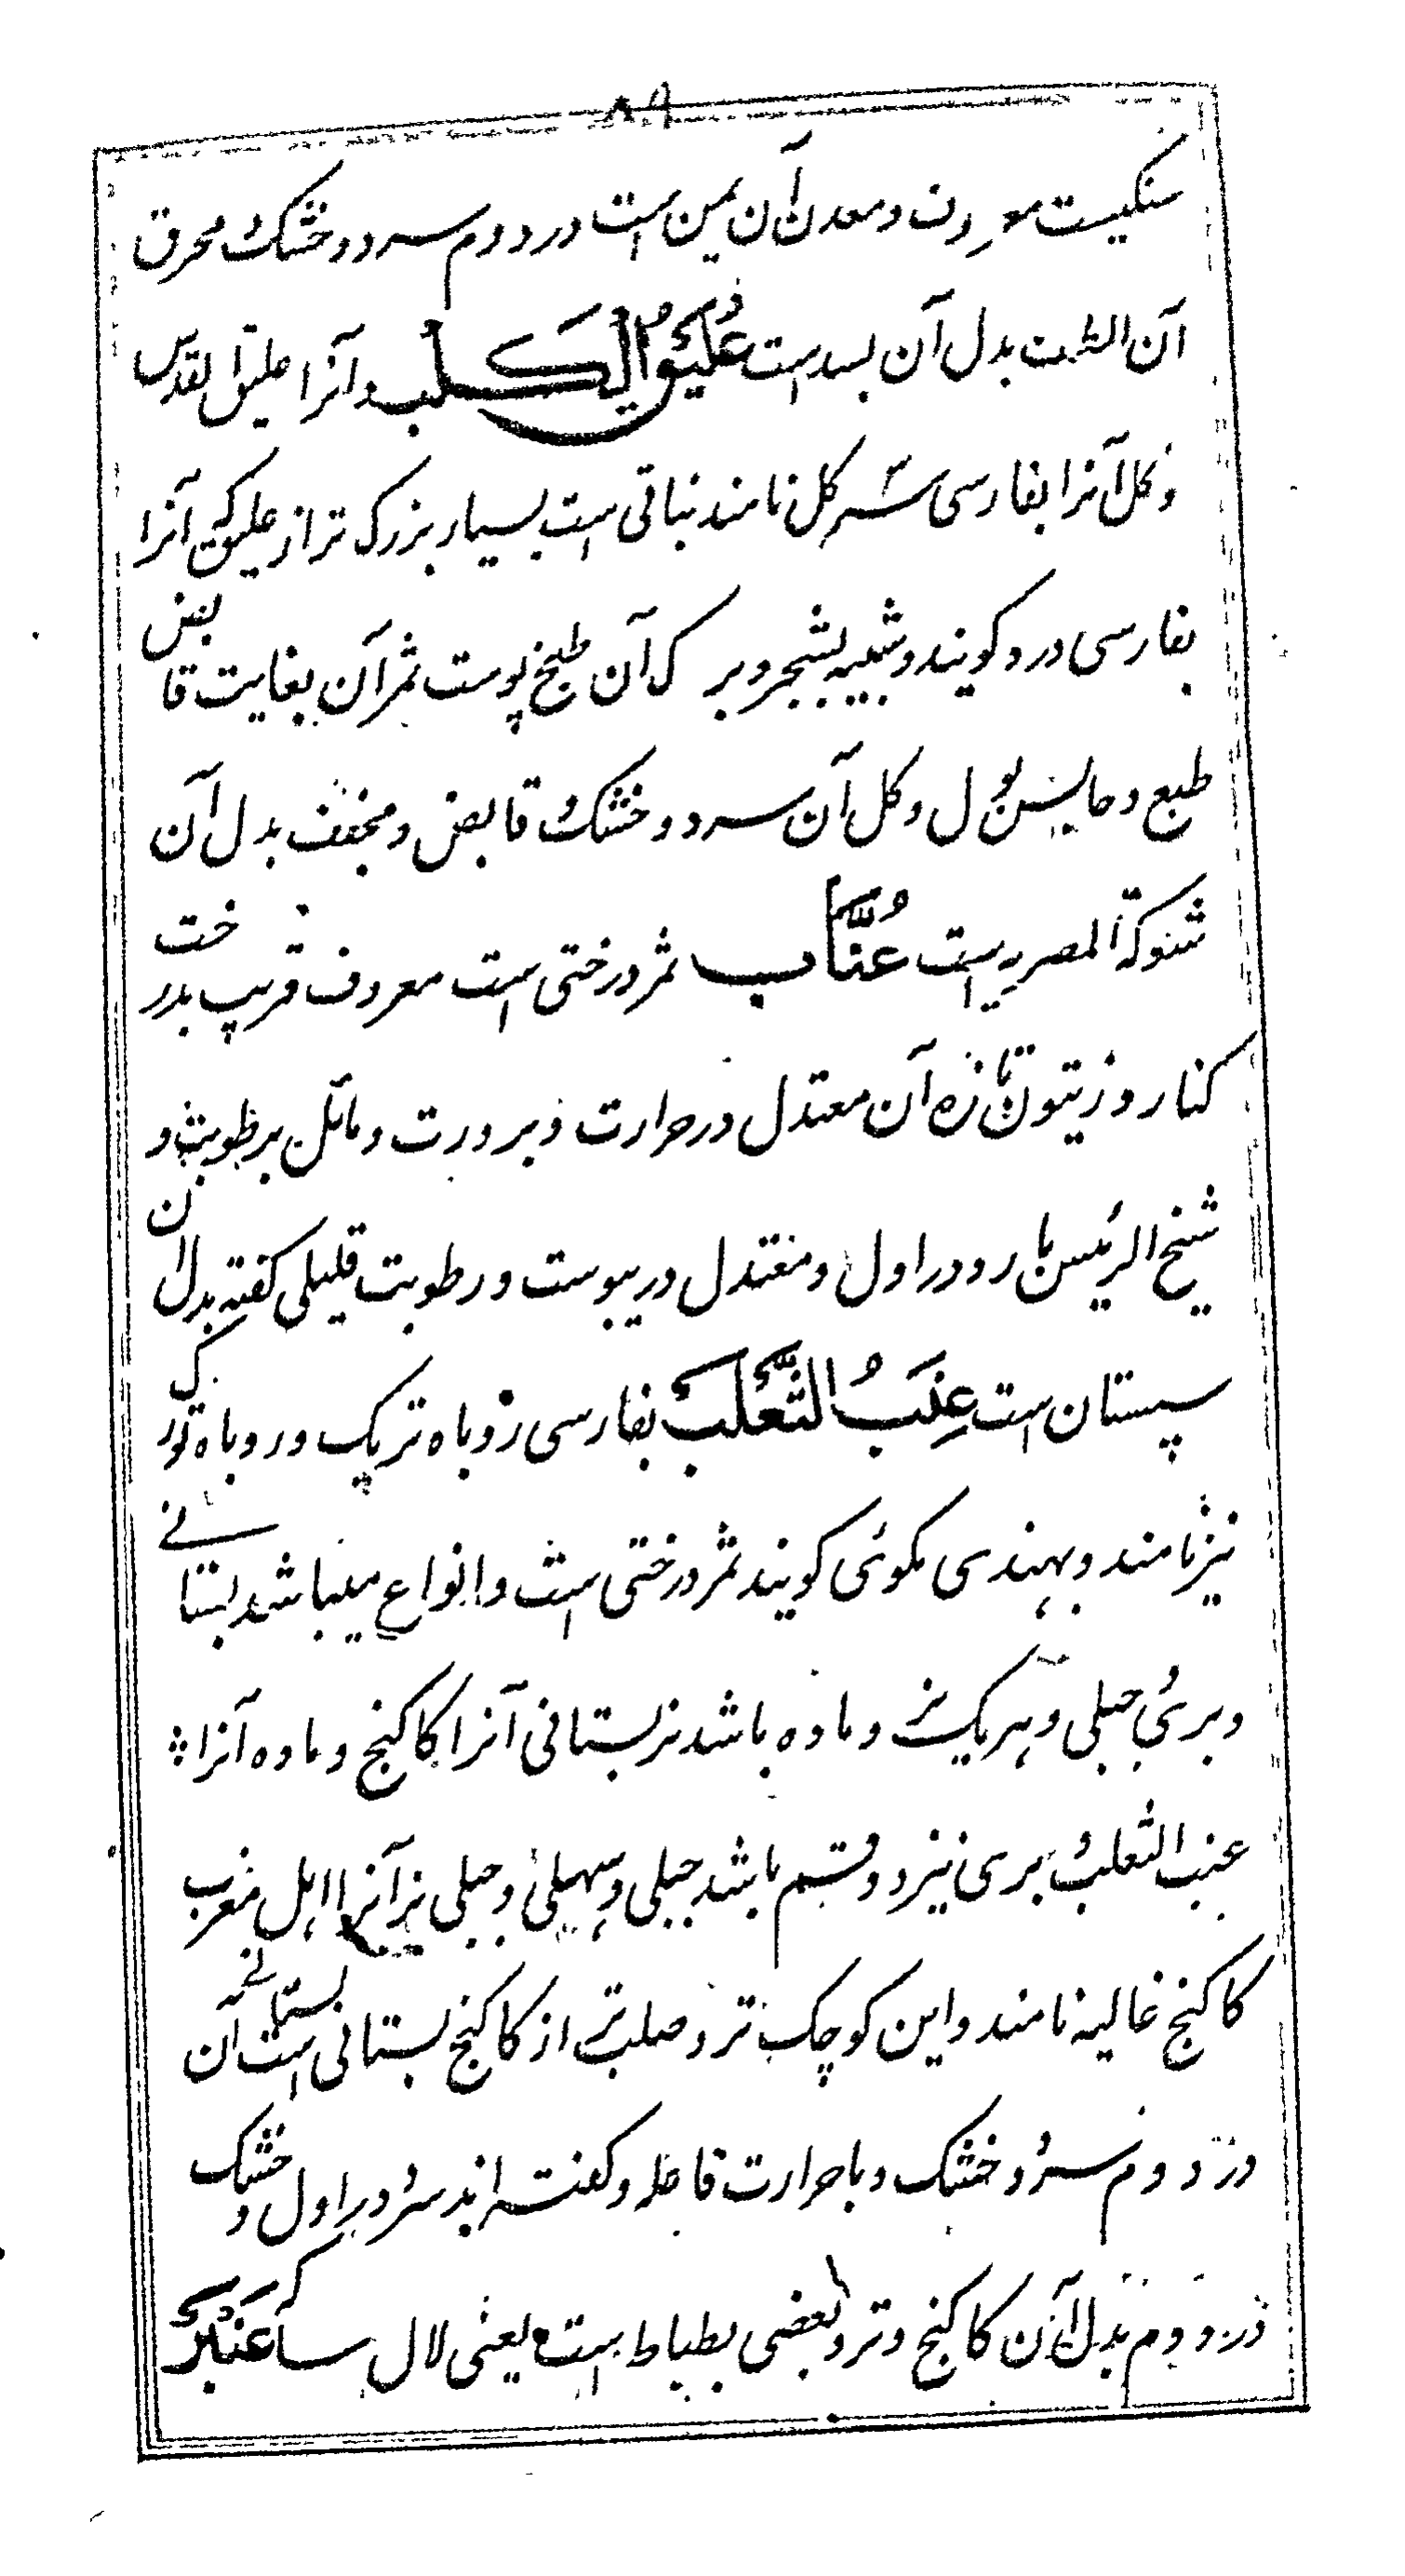 ۸۹
سنکیست معروف و معدن آن یمن است در دوم سرد و خشک محرق
آن الطف بدل آن بسد است عُلَّیْقُ الْکَلب و آنرا علیق القدس
و کل آنرا بفارسی سه کل نامند نباتی است بسیار بزرک تر از علیق که آنرا
بفارسی درد کویند و شبیه بشجر و برک آن طبخ پوست ثمر آن بغایت قابض
طبع و حابس بول و کل آن سرد و خشک قابض و مجفف بدل آن
شوکة المصریه است عُنَّاب ثمر درختی است معروف قریب بدرخت
کنار و زیتون تازه آن معتدل در حرارت و برودت و مائل برطوبت و
شیخ الرئیس بارد در اول و معتدل در یبوست و رطوبت قلیلی کفته بدل آن
سپستان است عِنَبُ الثَّعْلَب بفارسی روباه تریک و روباه تورک
نیز نامند و بهندی مکوئی کویند ثمر درختی است و انواع میباشد بستانے
و بری جبلی و هریک نر و ماده باشد نر بستانی آنرا کاکنج و ماده آنرا
عنب الثعلب بری نیز دو قسم باشد جبلی و سهلی و جبلی نر آنرا اهل مغرب
کاکنج غالیه نامند و این کوچک تر و صلب تر از کاکنج بستانی است بستانے آن
در دوم سرد و خشک و با حرارت فاعله و کفته اند سرد در اول و خشک
در دوم بدل آن کاکنج و تر و بعضی بطباط است یعنی لال ساک عَنْبَر